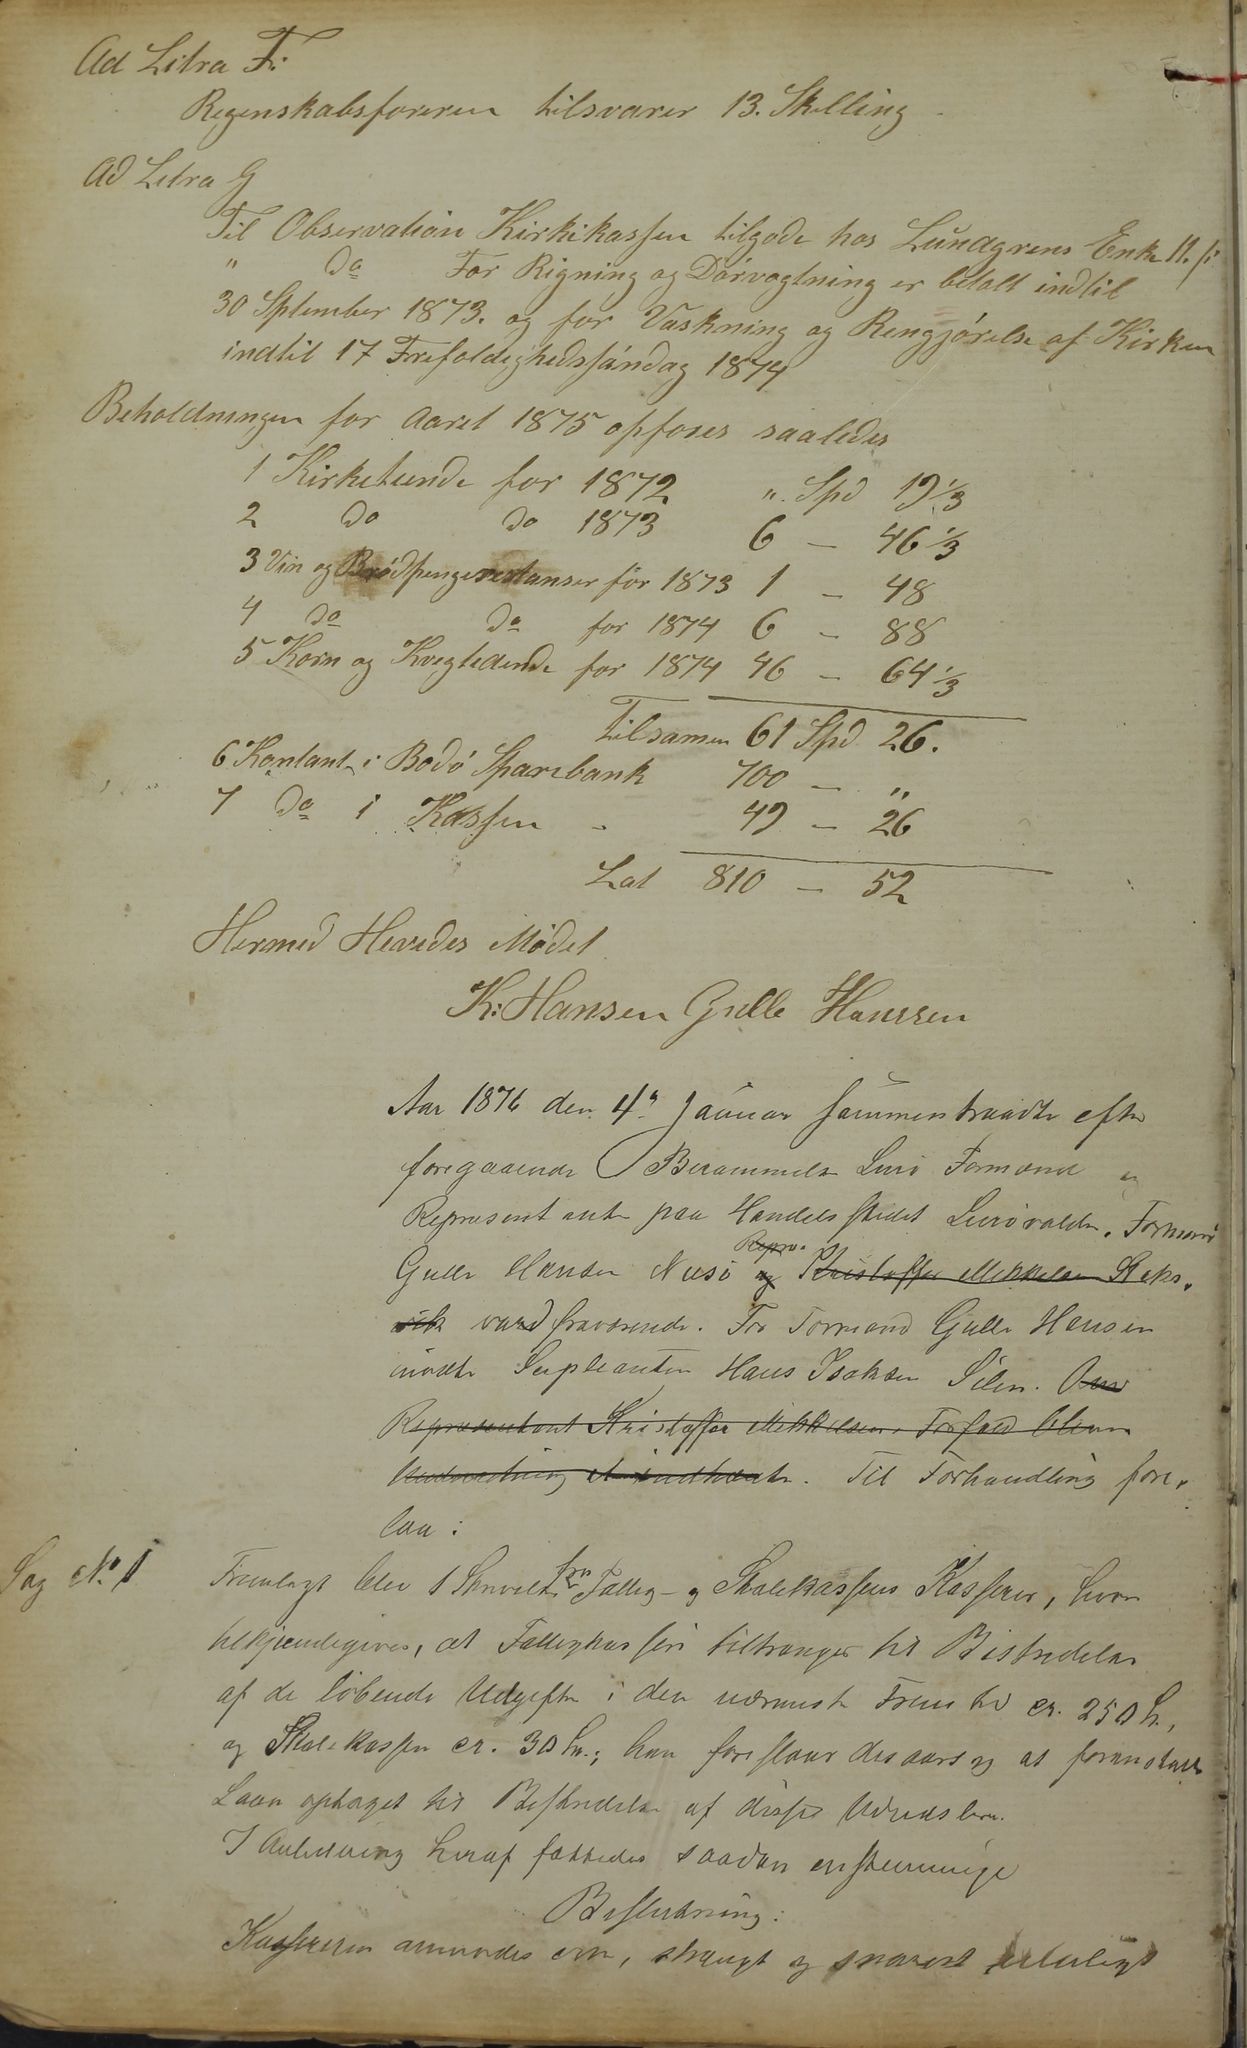 Ad Litra F:
Regenskabsføreren tilsvarer 13. Skelling
Ad Litra G
Til Observation Kirkekassen tilgode hos Lundgrens Enke 11. ſ:
" do For Rigning og Dørvogtning er betalt indtil
30 September 1873. og for Vaskning og Rengjørelse af Kirken
indtil 17 Trefoldighedssøndag 1874
Beholdningen for Aaret 1875 opføres saaledes
1 Kirketiende for 1872 " Spd 19 1/3
2 do do 1873 6 - 46 1/3
3 Vin og Brødpengerestanser för 1873 1 - 48
4 do do for 1874 6 - 88
5 Korn og Kvegtiende for 1874 46 - 64 1/3
Tilsamen 61 Spd 26.
6 Kontant i Bodø Sparebank 700 - "
7 do i Kassen - 49 - 26
Lat 810 - 52
Hermed Hevedes Mødet
K: Hansen Gulle Hanssen
Aar 1876 den 4de Januar sammentraadte efter
foregaaende Berammelse Lurø Formænd og
Repræsentanter paa Handelsstedet Lurøvalden. Formand
Gulle Hansen Nesø og Repr. Kristoffer Mikkelsen Staks-
vik vare fraværende. For Formand Gulle Hansen
mødte Supleanten Hans Isaksen Silen.
Repræsentant Kristoffer Mikkelsens Forfald blev
Til Forhandling fore-
laa:
Sag No. 1
Fremlagt blev 1 Skrivelse fra Fattig- og Skolekassens Kasserer, hvori
tilkjendegives, at Fattigkassen tiltrænger til Bestridelse
af de løbende Udgifter i den nærmeste Fremtid cr. 250 Kr.,
og Skolekassen cr. 30 Kr.; han foreslaar desaarsag at forannævnte
Laan optaget til Bestridelse af disse Udredsler.
I Anledning heraf fattedes saadan enstemmige
Beslutning:
Kassereren anmodes om, strængt og snarest